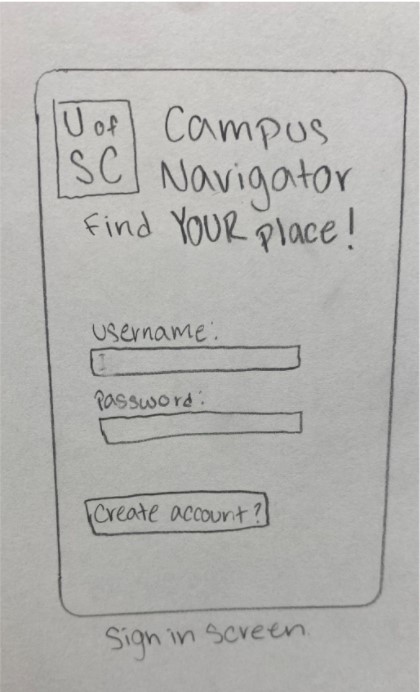 U of
SC
Campus
Navigator
Find YOUR place!
username:
Password:
Create account?
Sign in screen